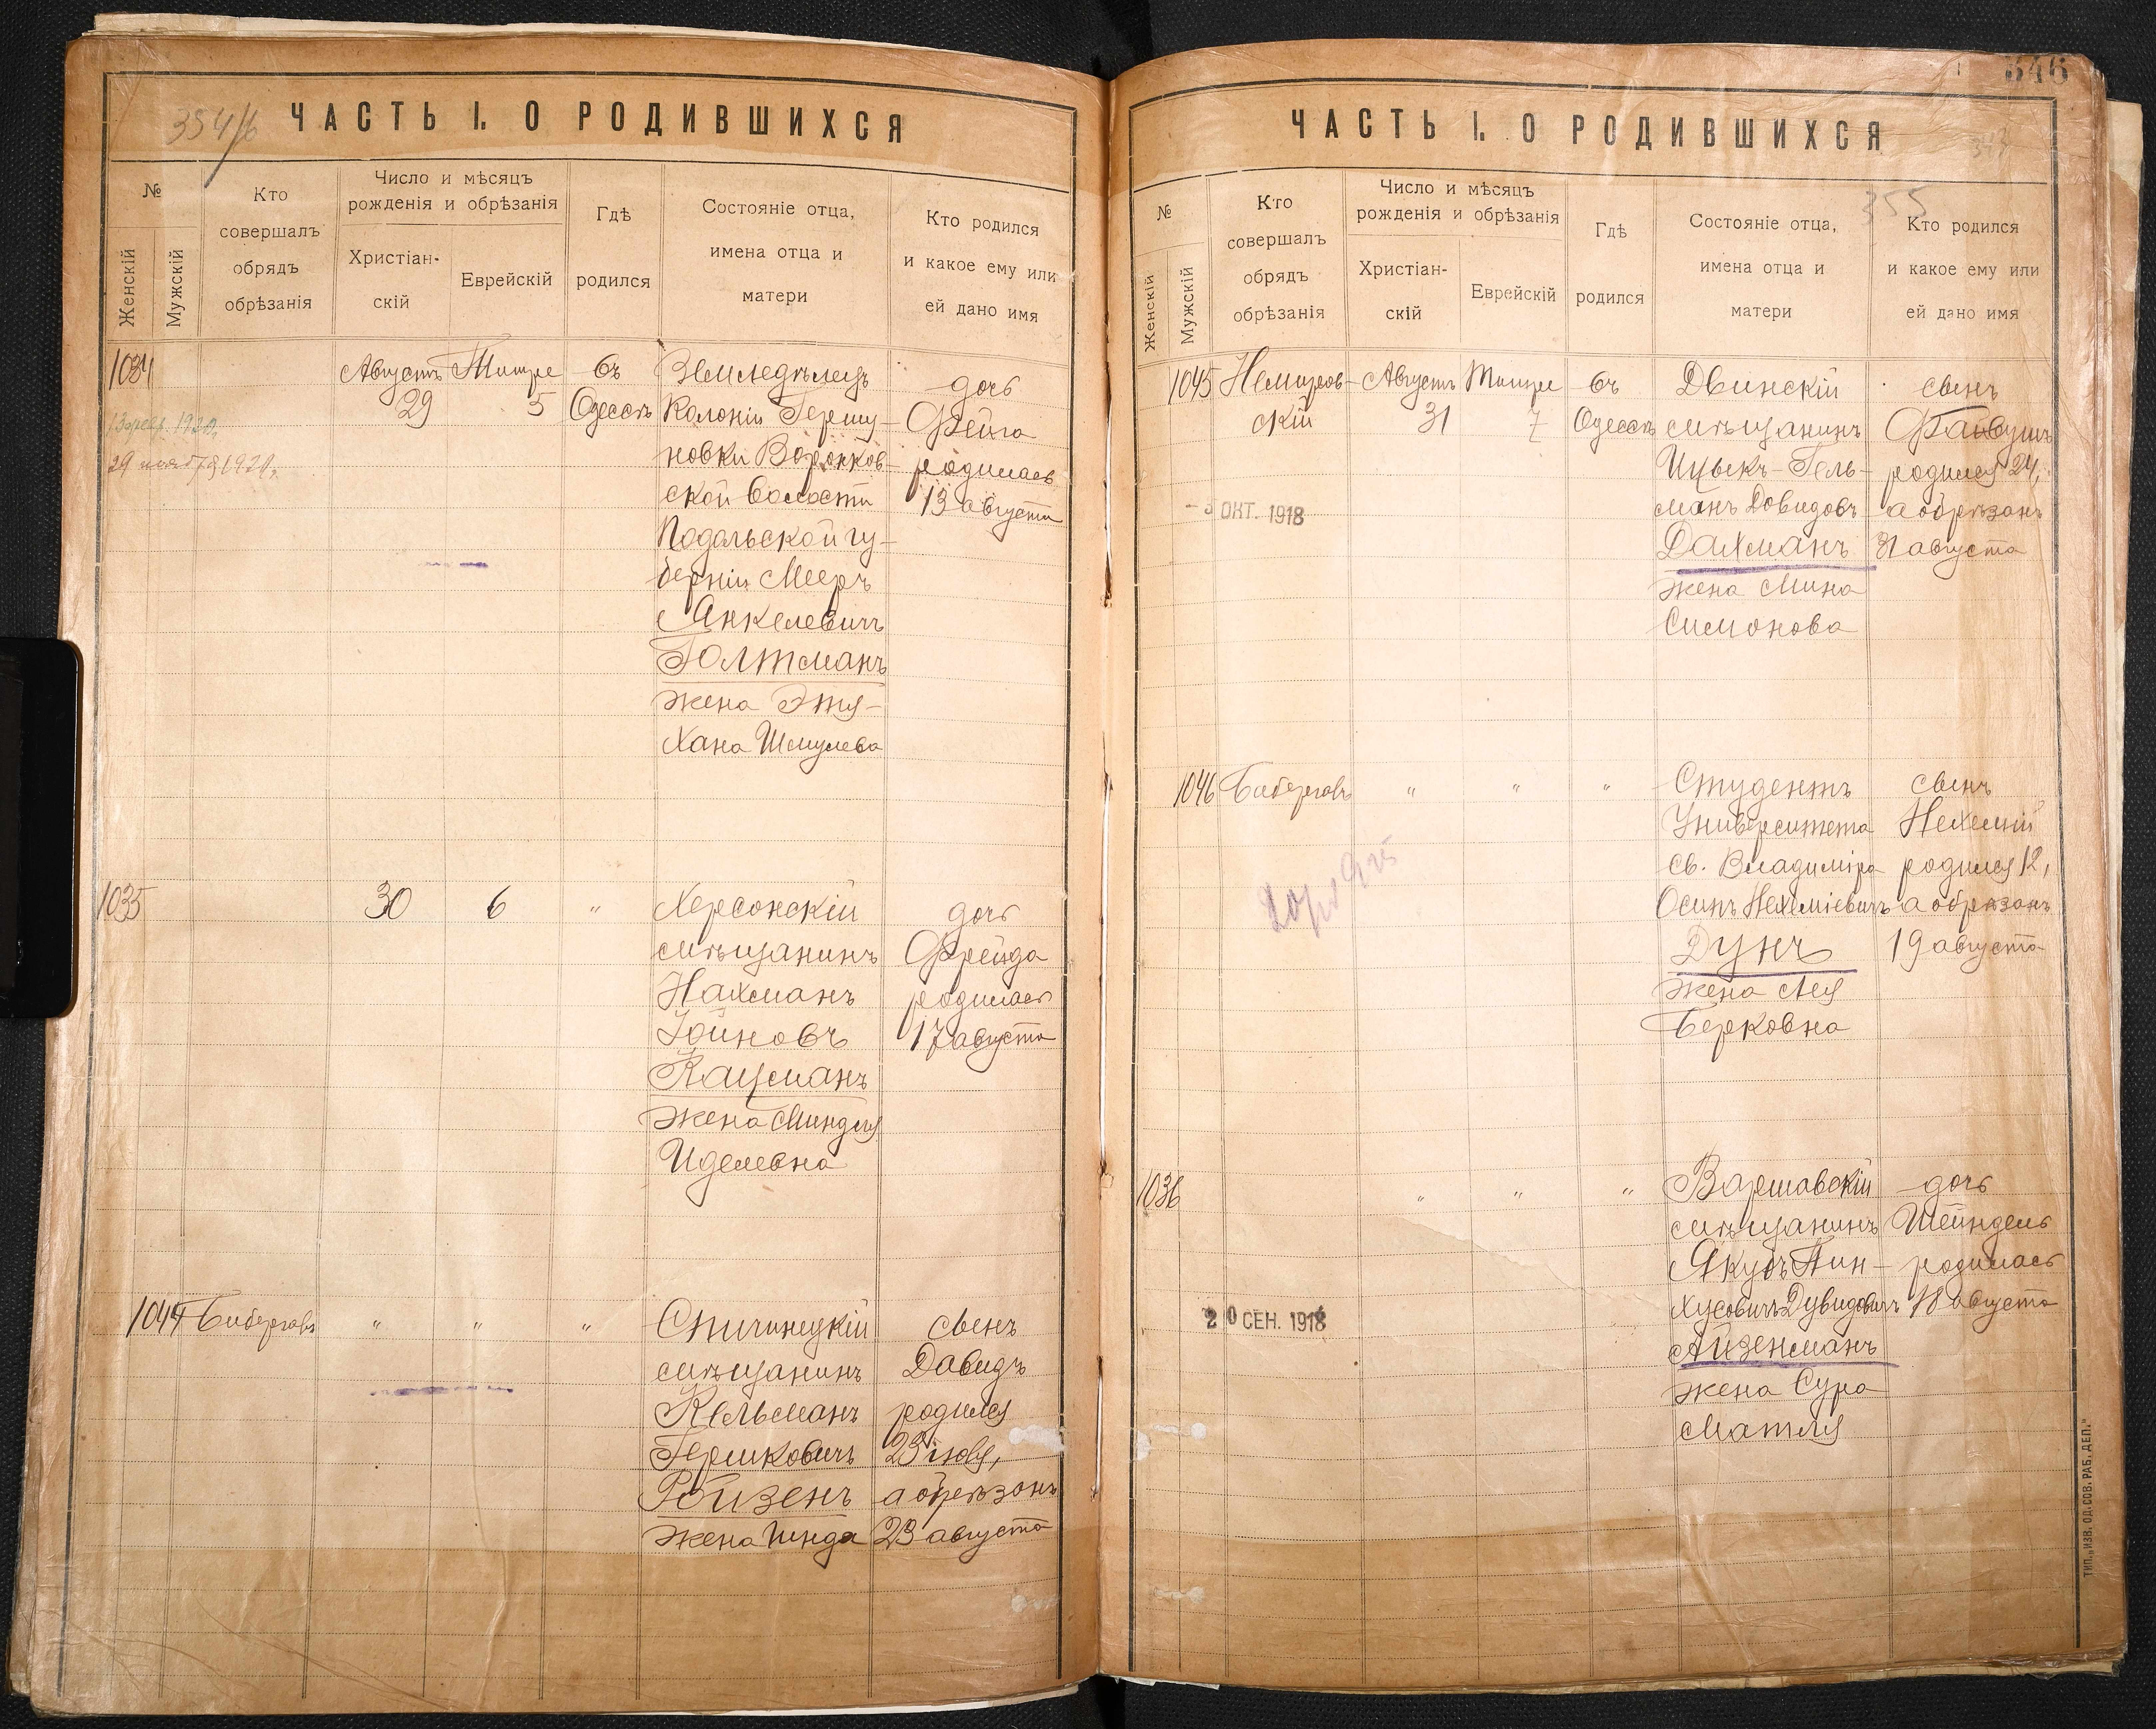 354/6
ЧАСТЬ I. О РОДИВШИХСЯ
№
Женскій
Мужскій
Кто
совершалъ
обрядъ
обрѣзанія
Число и мѣсяцъ
рожденія и обрѣзанія
Христіан-
скій
Еврейскій
Гдѣ
родился
Состояніе отца,
имена отца и
матери
Кто родился
и какое ему или
ей дано имя
1034
29 1920
Августъ
29
Тишре
5
въ
Одессѣ
Земледѣлецъ
Колоніи Гершу-
новки Воронков-
ской волости
Подольской гу-
берніи Мееръ
Янкелевичъ
Голтманъ
жена Этя-
Хана Шмулева
дочь
Фейга
родилась
13 августа
1035
30
6
"
Херсонскій
мѣщанинъ
Нахманъ
Іойновъ
Кацманъ
жена Миндля
Иделевна
дочь
Фрейда
родилась
17 августа
1044
Бибергалъ
"
"
"
Спичинецкій
мѣщанинъ
Кельманъ
Гершковичъ
Ройзенъ
жена Гинда
сынъ
Давидъ
родился
23 іюля,
а обрѣзанъ
23 августа
546
355
ЧАСТЬ I. О РОДИВШИХСЯ
№
Женскій
Мужскій
Кто
совершалъ
обрядъ
обрѣзанія
Число и мѣсяцъ
рожденія и обрѣзанія
Христіан-
скій
Еврейскій
Гдѣ
родился
Состояніе отца,
имена отца и
матери
Кто родился
и какое ему или
ей дано имя
1045
Немиров-
скій
- 3 ОКТ. 1918
Августъ
31
Тишре
7
въ
Одессѣ
Двинскій
мѣщанинъ
Ицыкъ-Гель-
манъ Довидовъ
Дахманъ
жена Мина
Симонова
сынъ
Файвушъ
родился 24,
а обрѣзанъ
31 августа
1046
Бибергалъ
"
"
"
Студентъ
Университета
Св. Владиміра
Осипъ Нехеміевичъ
Дунъ
жена Лея
Берковна
сынъ
Нехемій
родился 12,
а обрѣзанъ
19 августа
1036
2 0 СЕН. 1918
"
"
"
Варшавскій
мѣщанинъ
Якубъ Пин-
хусовичъ Дувидовичъ
Айзенманъ
жена Сура
Матля
дочь
Шейндель
родилась
18 августа
ТИП. „ИЗВ. ОД. СОВ. РАБ. ДЕП."